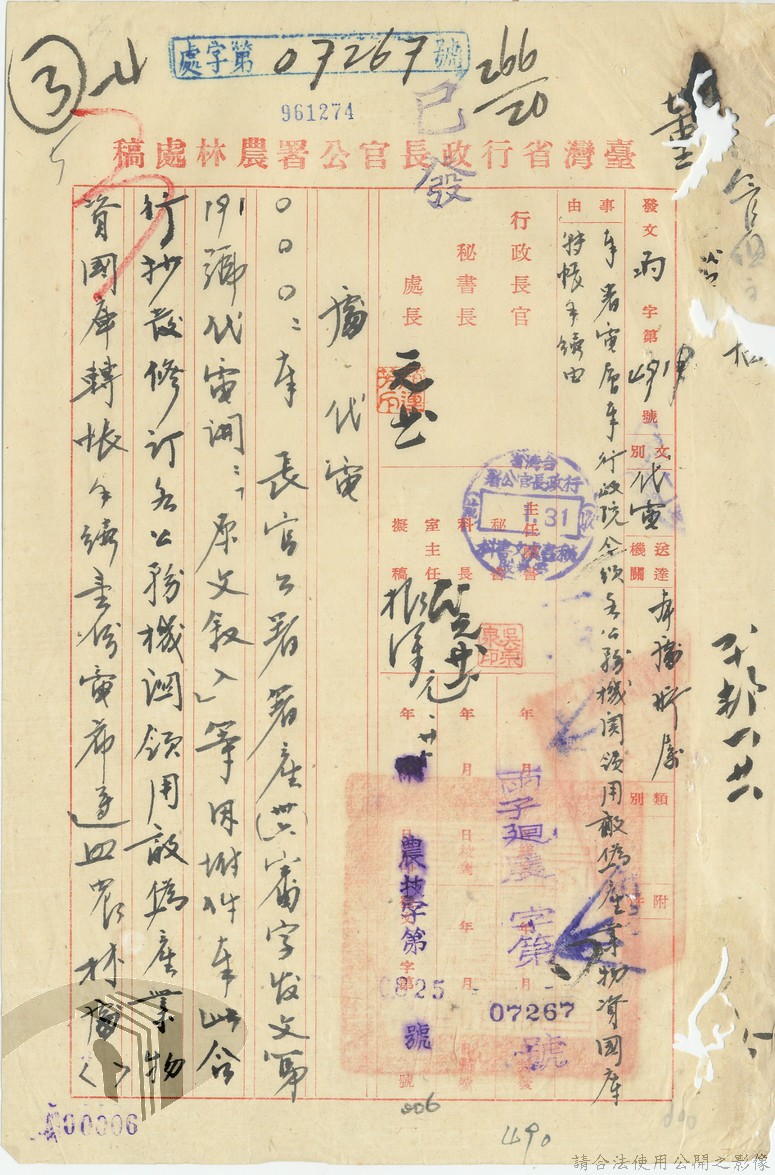 處字第 07267 號
266/20
961274
已發
臺灣省行政長官公署農林處稿
發文 字第 號
文別 代電
送達機關 本處所屬
類別
附
事由
奉署電層奉行政院令頒各公務機関領用敵偽產業物資國庫
轉帳手續由
行政長官
秘書長
處長
台灣省行政長官公署
1.31
主任秘書
秘書
科長
室主任
擬稿
年 月 日
字第 號
農技字第 0825 號
農 字第 07267 號
處代電
〇〇〇〇:奉 長官公署署產(卅六)審字发文第
191號代電開:「原文敘入」等因附件奉此合
行抄發修訂各公務機関領用敵偽產業物
資國庫轉帳手續壹份電希遵照農林處( )
00006
006
490
請合法使用公開之影像